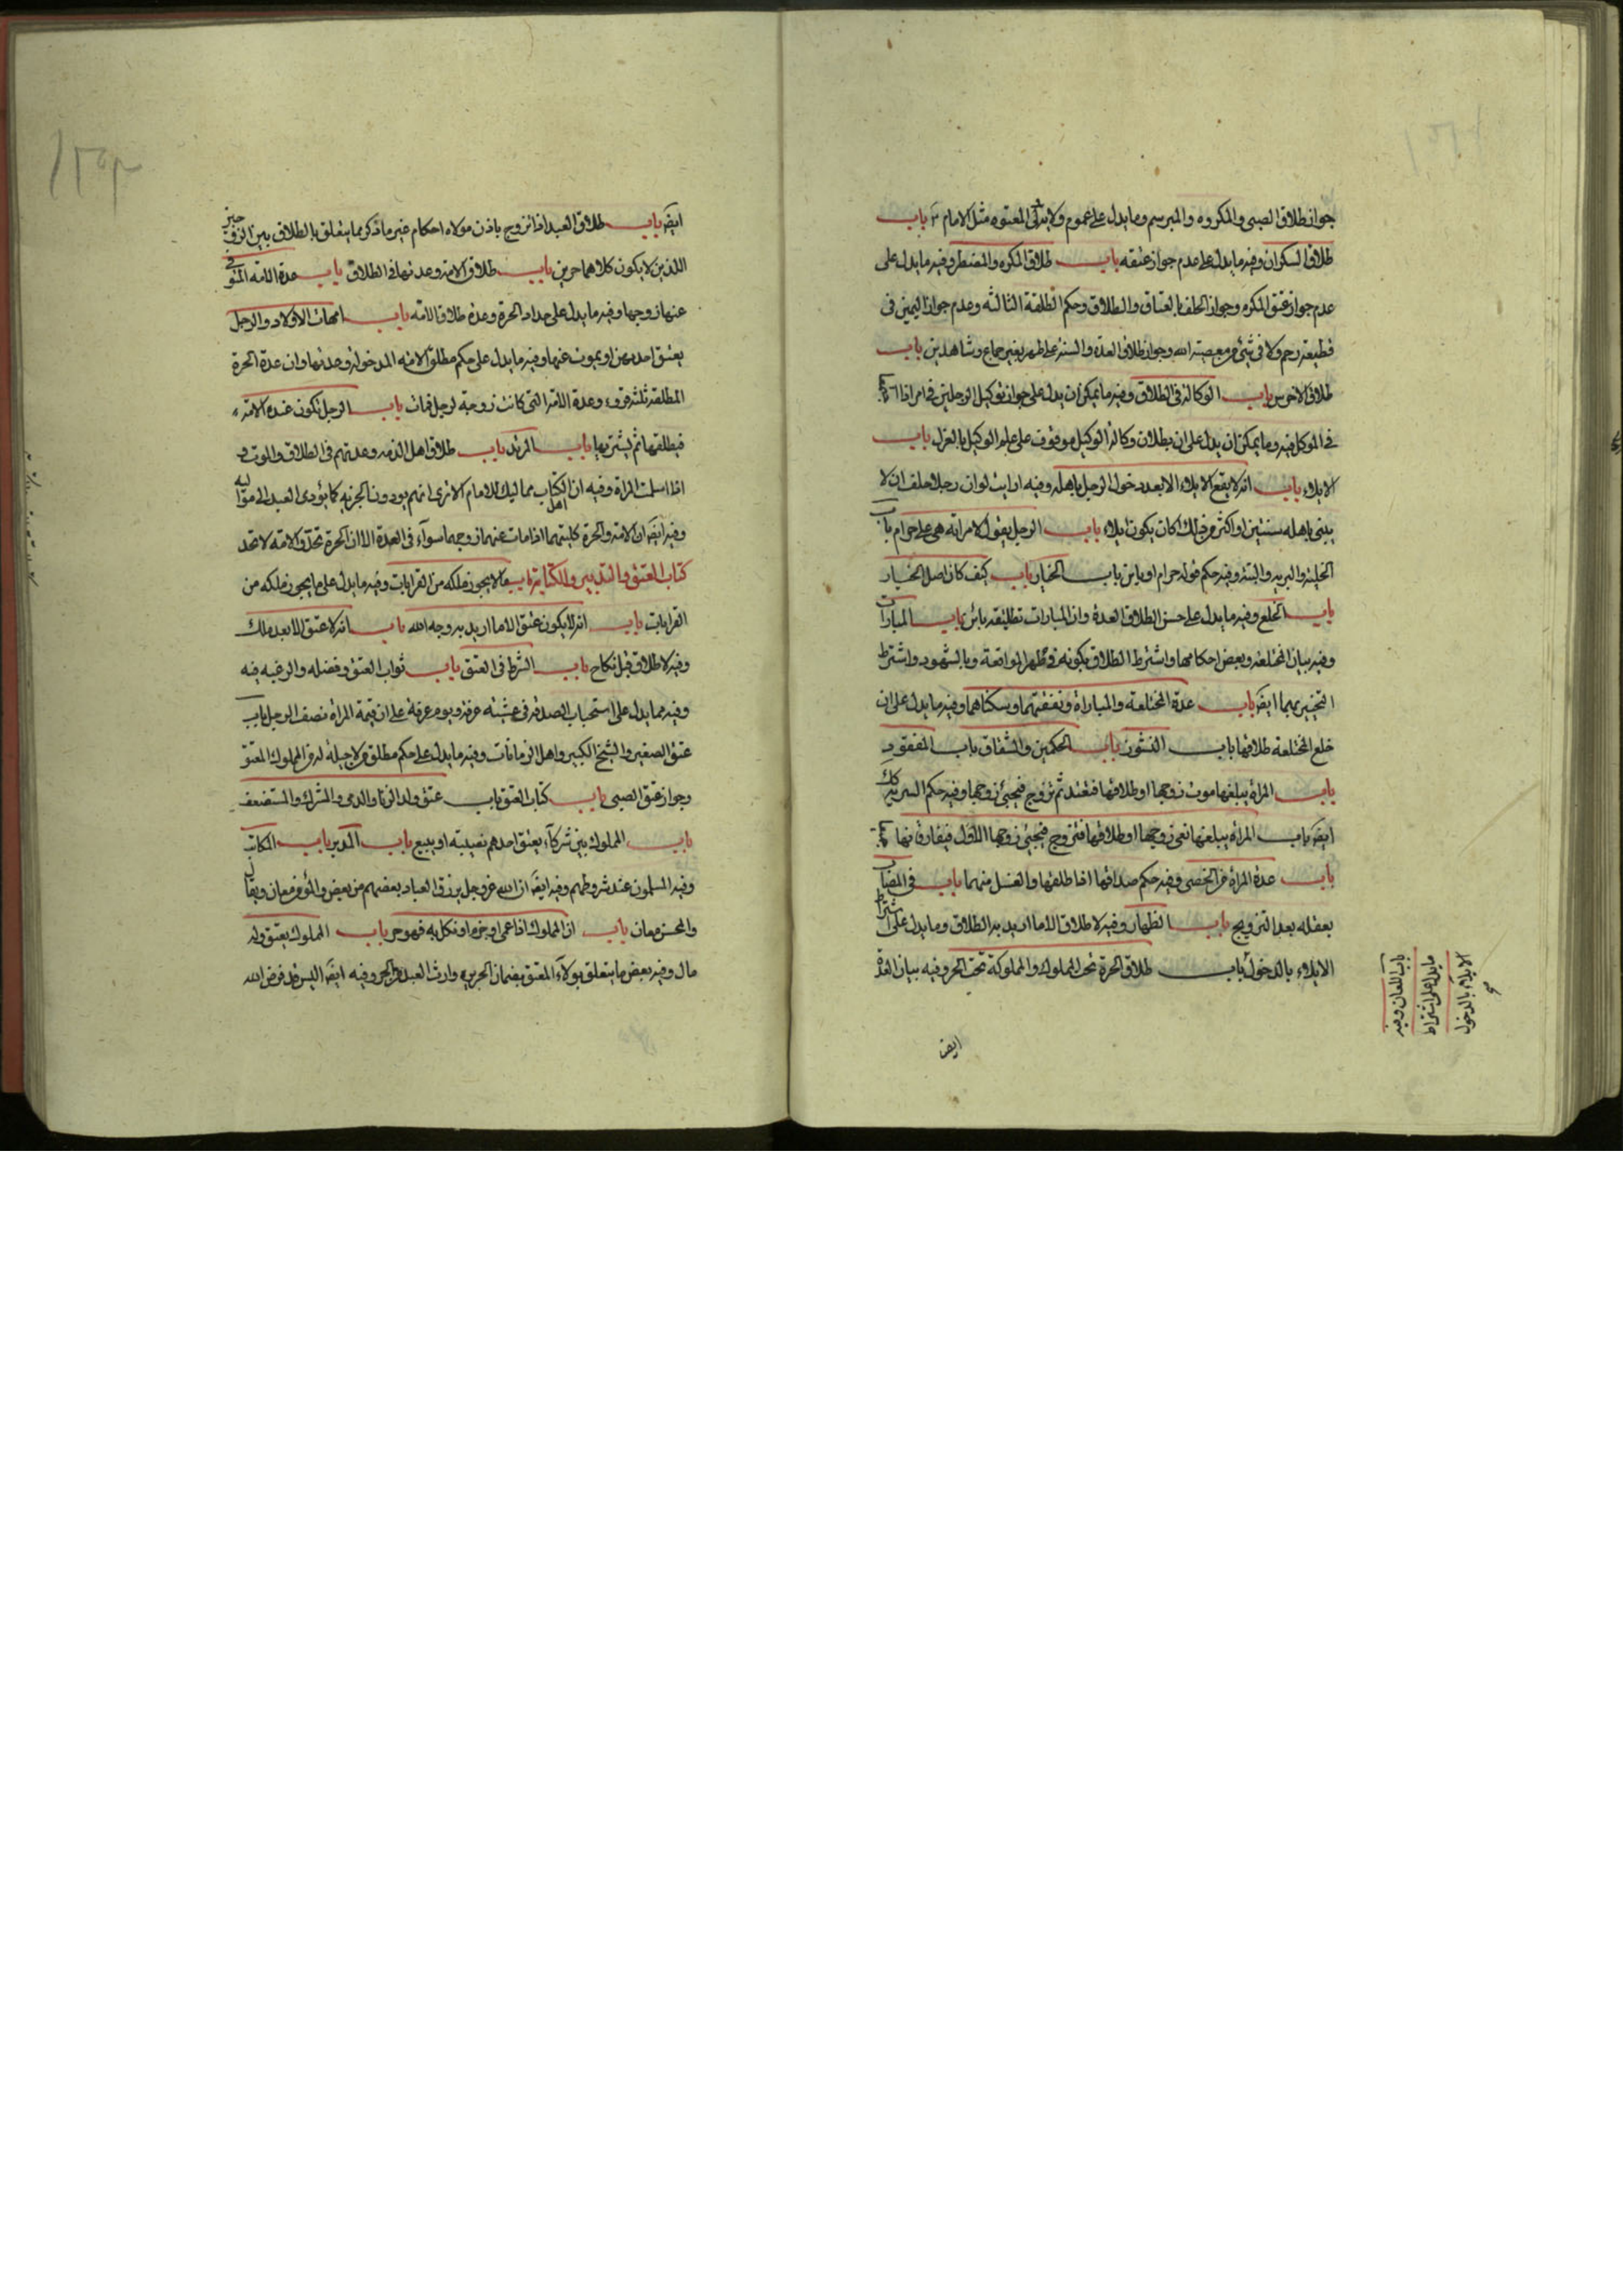 جواز طلاق الصبی والمکروه والمبرسم وما یدل علی عموم ولایة المعتوه مثل الامام باب
طلاق السکران وفیه ما یدل علی عدم جواز عتقه باب طلاق المکره والمضطر وفیه ما یدل علی
عدم جواز عتق المکره وجواز الحلف بالعتاق والطلاق وحکم التطلیقة الثالثه وعدم جواز الیمین فی
قطیعة رحم ولا فی شیء من معصیة الله وجواز طلاق العدة والسنة علی طهر بغیر جماع وشاهدین باب
طلاق الاخرس باب الوکالة فی الطلاق وفیه ما یمکن ان یدل علی جواز توکیل الرجلین فی امر اذا
فی الموکل فیه وما یمکن ان یدل علی ان بطلان وکالة الوکیل موقوف علی علم الوکیل بالعزل باب
الایلاء باب انه لا یقع الایلاء الا بعد دخول الرجل باهله وفیه ارایت لو ان رجلا حلف ان لا
یبنی باهله سنتین او اکثر من ذلک اکان یکون ایلاء باب الرجل یقول لامراته هی علی حرام باب
الخلیة والبریه والبتة وفیه حکم قوله حرام او باین باب الخیار باب کیف کان اصل الخیار
باب الخلع وفیه ما یدل علی حسن الطلاق العدة وان المبارات تطلیقه بائن باب المبارات
وفیه بیان المختلعة وبعض احکامها واشتراط الطلاق بکونه فی طهر المواقعة وبالشهود واشتراط
التخییر بهما ایضا باب عدة المختلعة والمباراة ونفقتهما وسکناهما وفیه ما یدل علی ان
خلع المختلعة طلاقها باب النشوز باب الحکمین والشقاق باب المفقود
باب المراة یبلغها موت زوجها او طلاقها فتعتد ثم تزوج فیجیء زوجها وفیه حکم السریة کک
ایضا باب المراة یبلغها نعی زوجها او طلاقها فتزوج فیجیء زوجها الاول فیفارقانها
باب عدة المراة من الخصی وفیه حکم صداقها اذا طلقها والغسل منهما باب فی المصاب
بعقله بعد التزویج باب الظهار وفیه لا طلاق الا ما ارید به الطلاق وما یدل علی اشتراط
الایلاء بالدخول باب طلاق الحرة تحت المملوک والمملوکة تحت الحر وفیه بیان العدة
باب اللعان وفیه
ما یدل علی اشتراط
الایلاء بالدخول
ایضا
ایضا باب طلاق العبد اذا تزوج باذن مولاه احکام غیر ما ذکر مما یتعلق بالطلاق بین الزوجین
اللذین لا یکون کلاهما حرین باب طلاق الامة وعدتها فی الطلاق باب عدة الامه المتوفی
عنها زوجها وفیه ما یدل علی حداد الحرة وعدة طلاق الامه باب امهات الاولاد والرجل
یعتق احدیهن او یموت عنها وفیه ما یدل علی حکم مطلق الامه المدخولة وعدتها وان عدة الحرة
المطلقة ثلثة قروء وعدة الامة التی کانت زوجة لرجل فمات باب الرجل تکون عنده الامة
فیطلقها ثم یشتریها باب المرتد باب طلاق اهل الذمه وعدتهم فی الطلاق والموت و
اذا اسلمت المراة وفیه ان اهل الکتاب ممالیک للامام الا تری انهم یودون الجزیه کما یؤدی العبد الی موالیه
وفیه ایضا ان الامة والحرة کلیتهما اذا مات عنهما زوجهما سوآء فی العدة الا ان الحرة تحد والامة لا تحد
کتاب العتق والتدبیر والکتابة باب ما لا یجوز ملکه من القرابات وفیه ما یدل علی ما یجوز ملکه من
القرابات باب انه لا یکون عتق الا ما ارید به وجه الله باب انه لا عتق الا بعد ملک
وفیه لا طلاق قبل نکاح باب الشرط فی العتق باب ثواب العتق وفضله والرغبه فیه
وفیه مما یدل علی استحباب الصدقة فی عشیة عرفه ویوم عرفة علی ان قیمة المراة نصف الرجل باب
عتق الصغیر والشیخ الکبیر واهل الزمانات وفیه ما یدل علی حکم مطلق من لا حیلة له من المملوک المعتق
وجواز عتق الصبی باب کتاب العتق باب عتق ولد الزنا والذمی والمشرک والمستضعف
باب المملوک بین شرکآء یعتق احدهم نصیبه او یبیع باب المدبر باب المکاتب
وفیه المسلمون عند شروطهم وفیه ایضا ان الله عز وجل یرزق العباد بعضهم من بعض والمؤمن معان ویقال
والمحسن معان باب ان المملوک اذا عمی او جذم او نکل به فهو حر باب المملوک یعتق وله
مال وفیه بعض ما یتعلق بولآء المعتق بضمان الجریره وارث العبد والحر وفیه ایضا الیس قد فرض الله